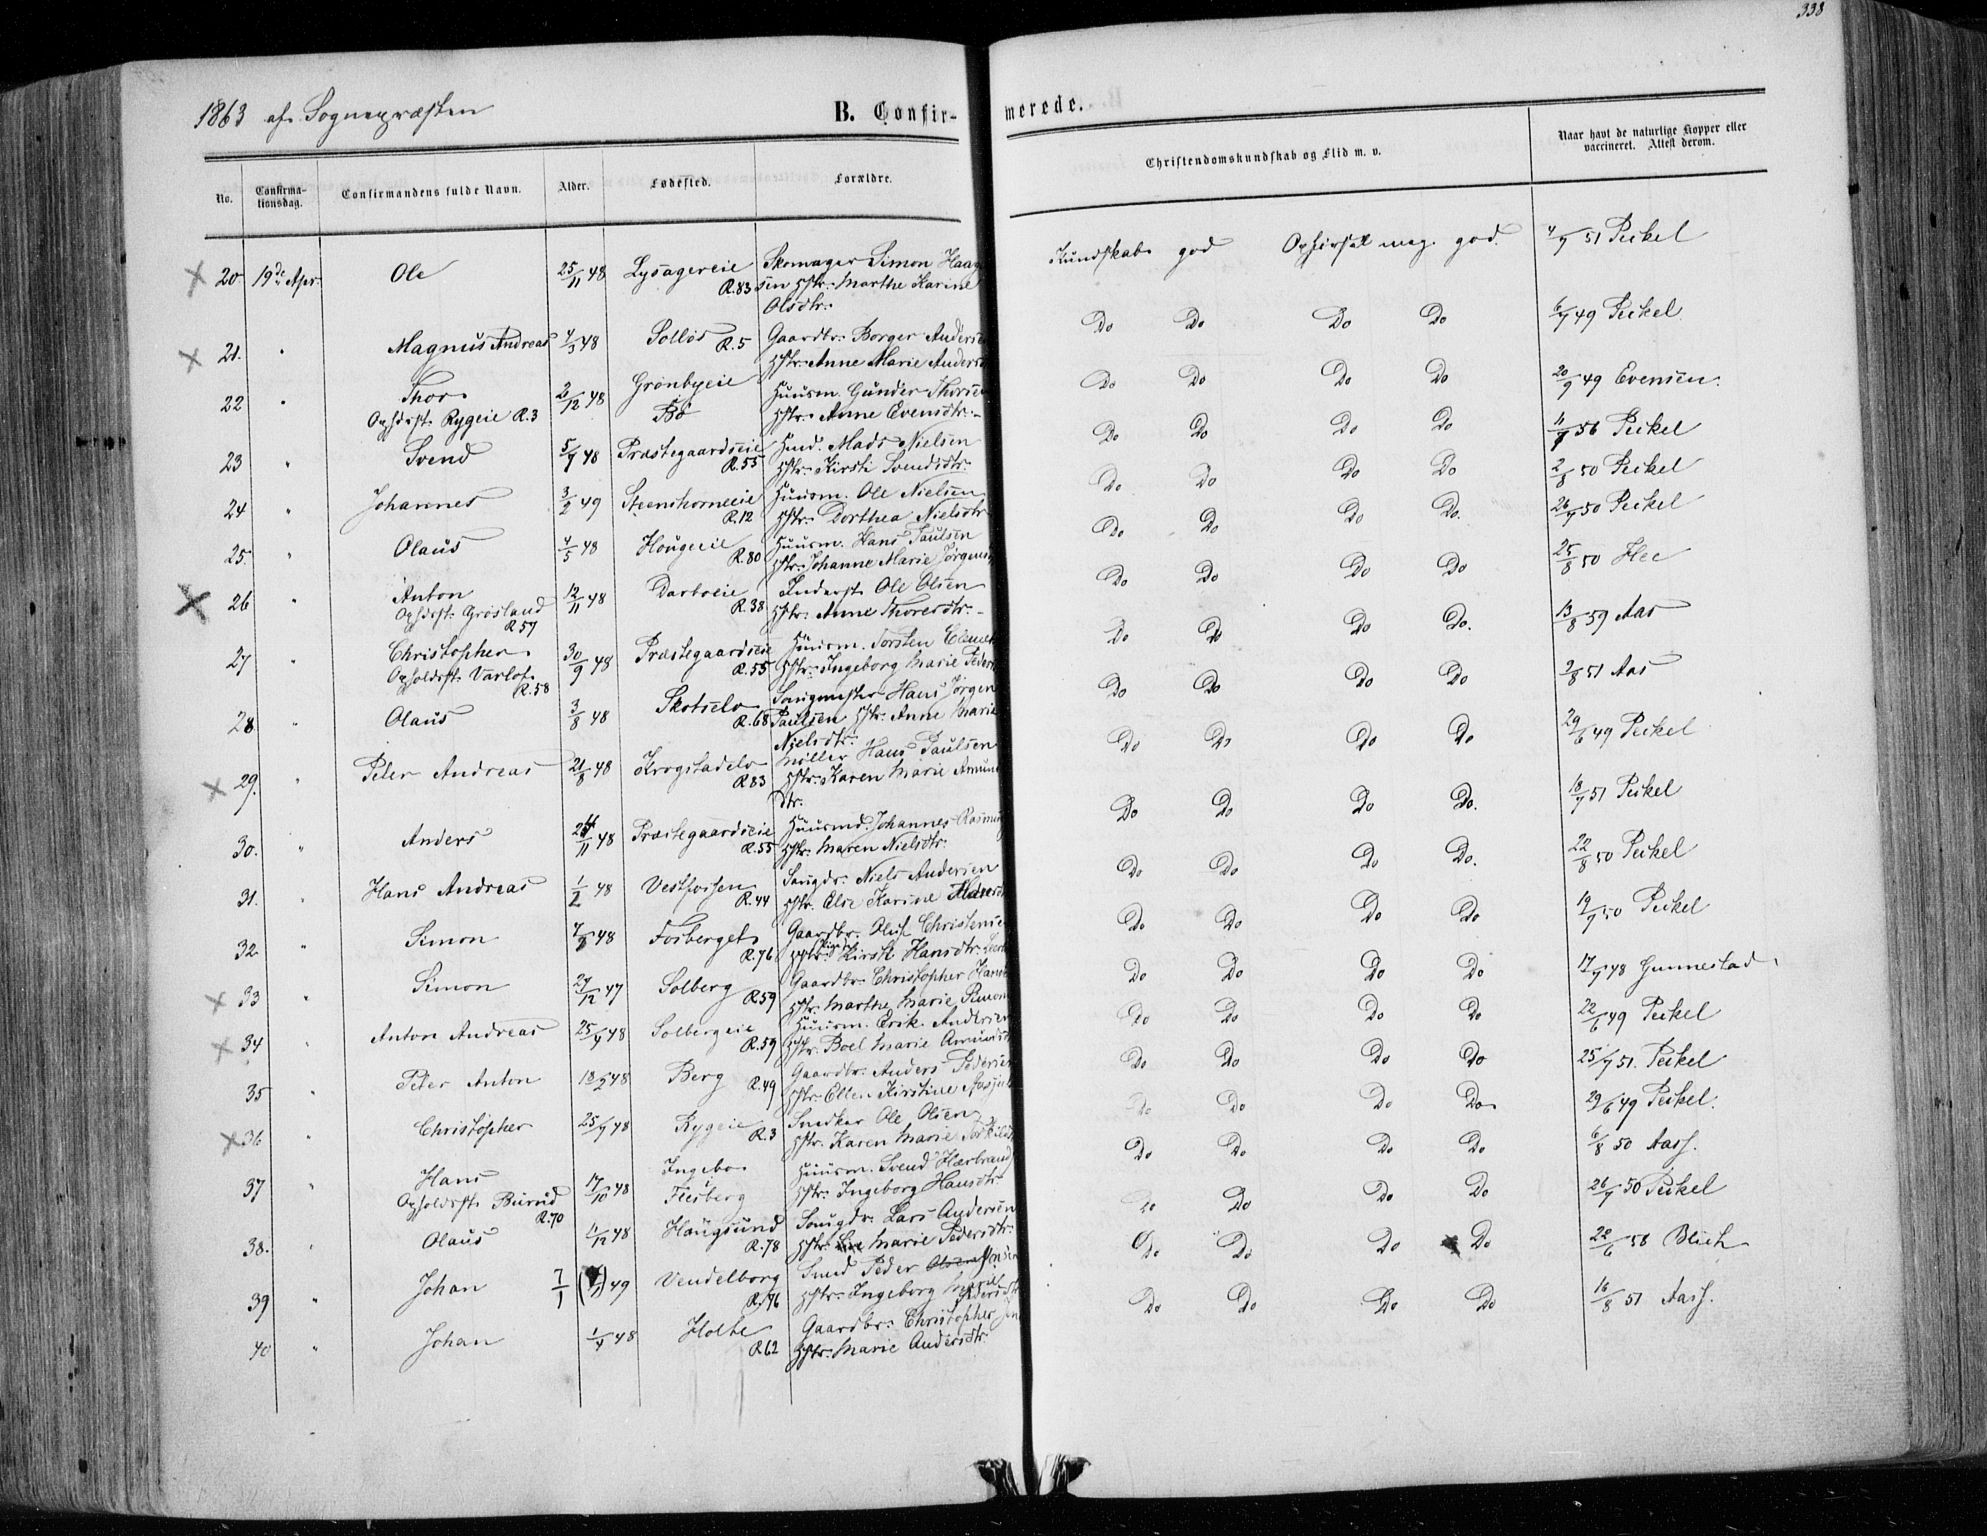 338
1863 af Sognepræsten
B. Confir-
merede.
No.
Confirma-
tionsdag.
Confirmandens fulde Navn.
Alder.
Fødested.
Forældre.
Christendomskundskab og Flid m. v.
Naar havt de naturlige Kopper eller
vaccineret. Attest derom.
20 19de Apr. Ole 25/11 48 Lysagereie R.83 Skomager Simon Haag
sen Hstr. Marthe Karine
Olsdtr.
Kundskab god Opførsel meg. god. 4/7 51 Peckel
21. " Magnus Andreas 4/3 48 Solløs R.5 Gaardbr. Borger Anderse
Hstr. Anne Marie Anders
Do Do Do Do 6/7 49 Peckel
22 " Thor 2/12 48 Grønbyeie Huusm. Gunder Thorsen
Opholdsst. Rygeie R.3 Bø Hstr. Anne Evensdtr.
Do Do Do Do 20/9 49 Evensen.
23 " Svend 5/7 48 Præstegaardseie Ind. Mads Nielsen
R.55 Hstr. Kirsti Svendsdtr.
Do Do Do Do 11/8 56 Peckel
24 " Johannes 3/2 49 Steenshorneeie Huusm. Ole Nielsen
R.12 Hstr. Dorthea Nielsdtr
Do Do Do Do 2/8 50 Peckel
25. " Olaus 4/5 48 Hougeeie Huusm. Hans Paulsen
R.80 Hstr. Johanne Marie Jørgens
Do Do Do Do. 26/7 50 Peckel
26 " Anton 12/11 48 Darboeie Inderst Ole Olsen
Opholdsst. Grøsland R.38 Hstr. Anne Thoresdtr.
R.57
Do Do Do Do 25/8 50 Hee
27 " Christopher 30/9 48 Præstegaardseie Huusm. Torsten Clemet
Opholdsst. Varlo R.55 Hstr. Ingeborg Marie Peders
R.58
Do Do Do Do. 13/8 59 Aas
28 " Olaus 3/8 48 Skotselv Hans Jørgen
R.68 Paulsen Hstr. Anne Marie
Nielsdtr.
Do Do Do Do 2/8 51 Aas
29. " Peter Andreas 21/8 48 Krogstadelv Møller Hans Paulsen
R.83 Hstr. Karen Marie Amund
dtr.
Do Do Do Do 29/6 49 Peckel
30. " Anders /11 48 Præstegaardseie Huusmd. Johannes Rasmus
R.55 Hstr. Maren Nielsdtr.
Do Do Do Do. 18/7 51 Peckel
31. " Hans Andreas 1/2 48 Vestfossen Saugdr. Niels Andersen
R.44 Hstr. Else Karine
Do Do Do Do. 22/8 50 Peckel
32 " Simon 48 Fosberget Gaardbr. Oluf Christense
R.76 Kirsti Hansdtr.
Do Do Do Do 19/7 50 Peckel
33 " Simon 27/12 47 Solberg Gaardbr. Christopher Hans
R.59 Hstr. Marthe Marie Simon
Do Do Do Do 17/7 48 Gunnestad
34 " Anton Andreas 25/7 48 Solbergeie Huusm. Erik Andersen
R.59 Hstr. Boel Marie Amunds
Do Do Do Do 22/6 49 Peckel
35 " Peter Anton 18/2 48 Berg R.49 Gaardbr. Anders Pedersen
Hstr. Ellen Kirstine
Do Do Do Do 25/7 51. Peckel
36 " Christopher 25/7 48 Rygeie Snedker Ole Olsen
R.3 Hstr. Karen Marie Torkilds
Do Do Do Do 29/6 49 Peckel.
37 " Hans 17/10 48 Ingebo Huusm. Svend Hærbrand
Opholdsst. Burud Flesberg Hstr. Ingeborg Hansdtr
R.70
Do Do Do Do 6/8 50 Aass.
38. " Olaus 4/12 48 Haugsund Saugdr. Lars Andersen
R.78 Hstr. Marie Pedersdtr.
Do Do Do Do 26/7 50 Peckel
39 " Johan 7/1 49 Vendelborg Smed Peder Jensen
R.76 Hstr. Ingeborg Marie
Pedersdtr
Do Do Do Do 22/6 58 Blich
40 " Johan 1/4 48 Holte Gaardbr. Christopher Jen
R.62 Hstr. Marie Andersdtr.
Do Do Do Do 16/8 51 Aass.